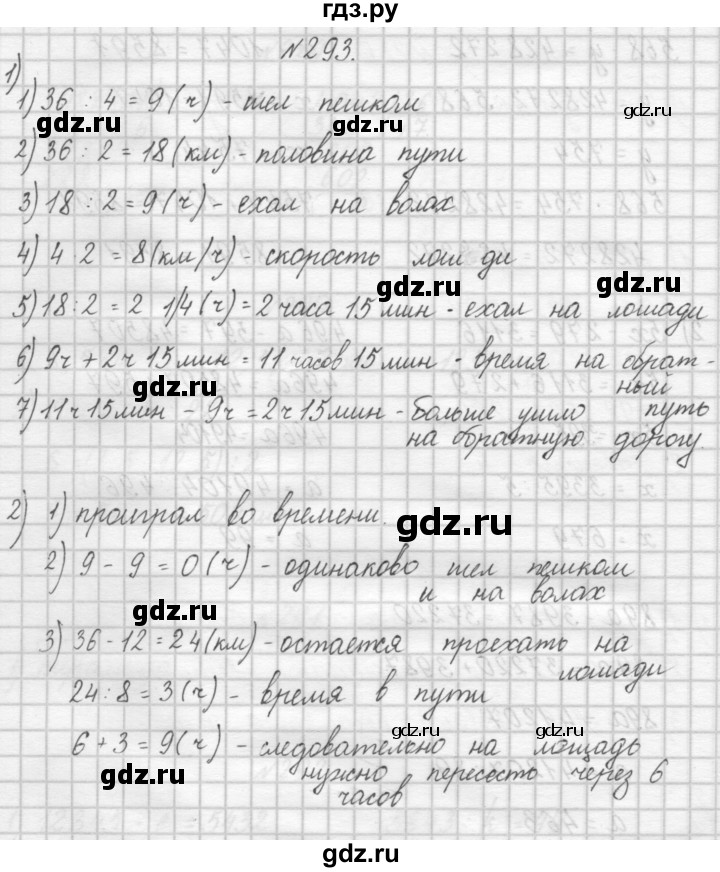 гдз.ру
№293.
1)
1) 36 : 4 = 9 (ч) - шел пешком
gdz.ru gdz.ru gdz.ru
2) 36 : 2 = 18 (км) - половина пути
3) 18 : 2 = 9 (ч) - ехал на волах
gdz.ru
4) 4 · 2 = 8 (км/ч) - скорость лош ди
gdz.ru gdz.ru
5) 18 : 2 = 2 1/4 (ч) = 2 часа 15 мин - ехал на лошади
6) 9ч + 2ч 15мин = 11 часов 15 мин - время на обрат-
ный
gdz.ru
7) 11ч 15мин - 9ч = 2ч 15мин - больше ушло путь
на обратную дорогу.
2) 1) проиграл во времени.
gdz.ru
2) 9 - 9 = 0 (ч) - одинаково шел пешком
и на волах
gdz.ru
3) 36 - 12 = 24 (км) - остается проехать на
лошади
24 : 8 = 3 (ч) - время в пути
gdz.ru gdz.ru
6 + 3 = 9 (ч) - следовательно на лощадь
gdz.ru
нужно пересесть через 6
часов
gdz.ru